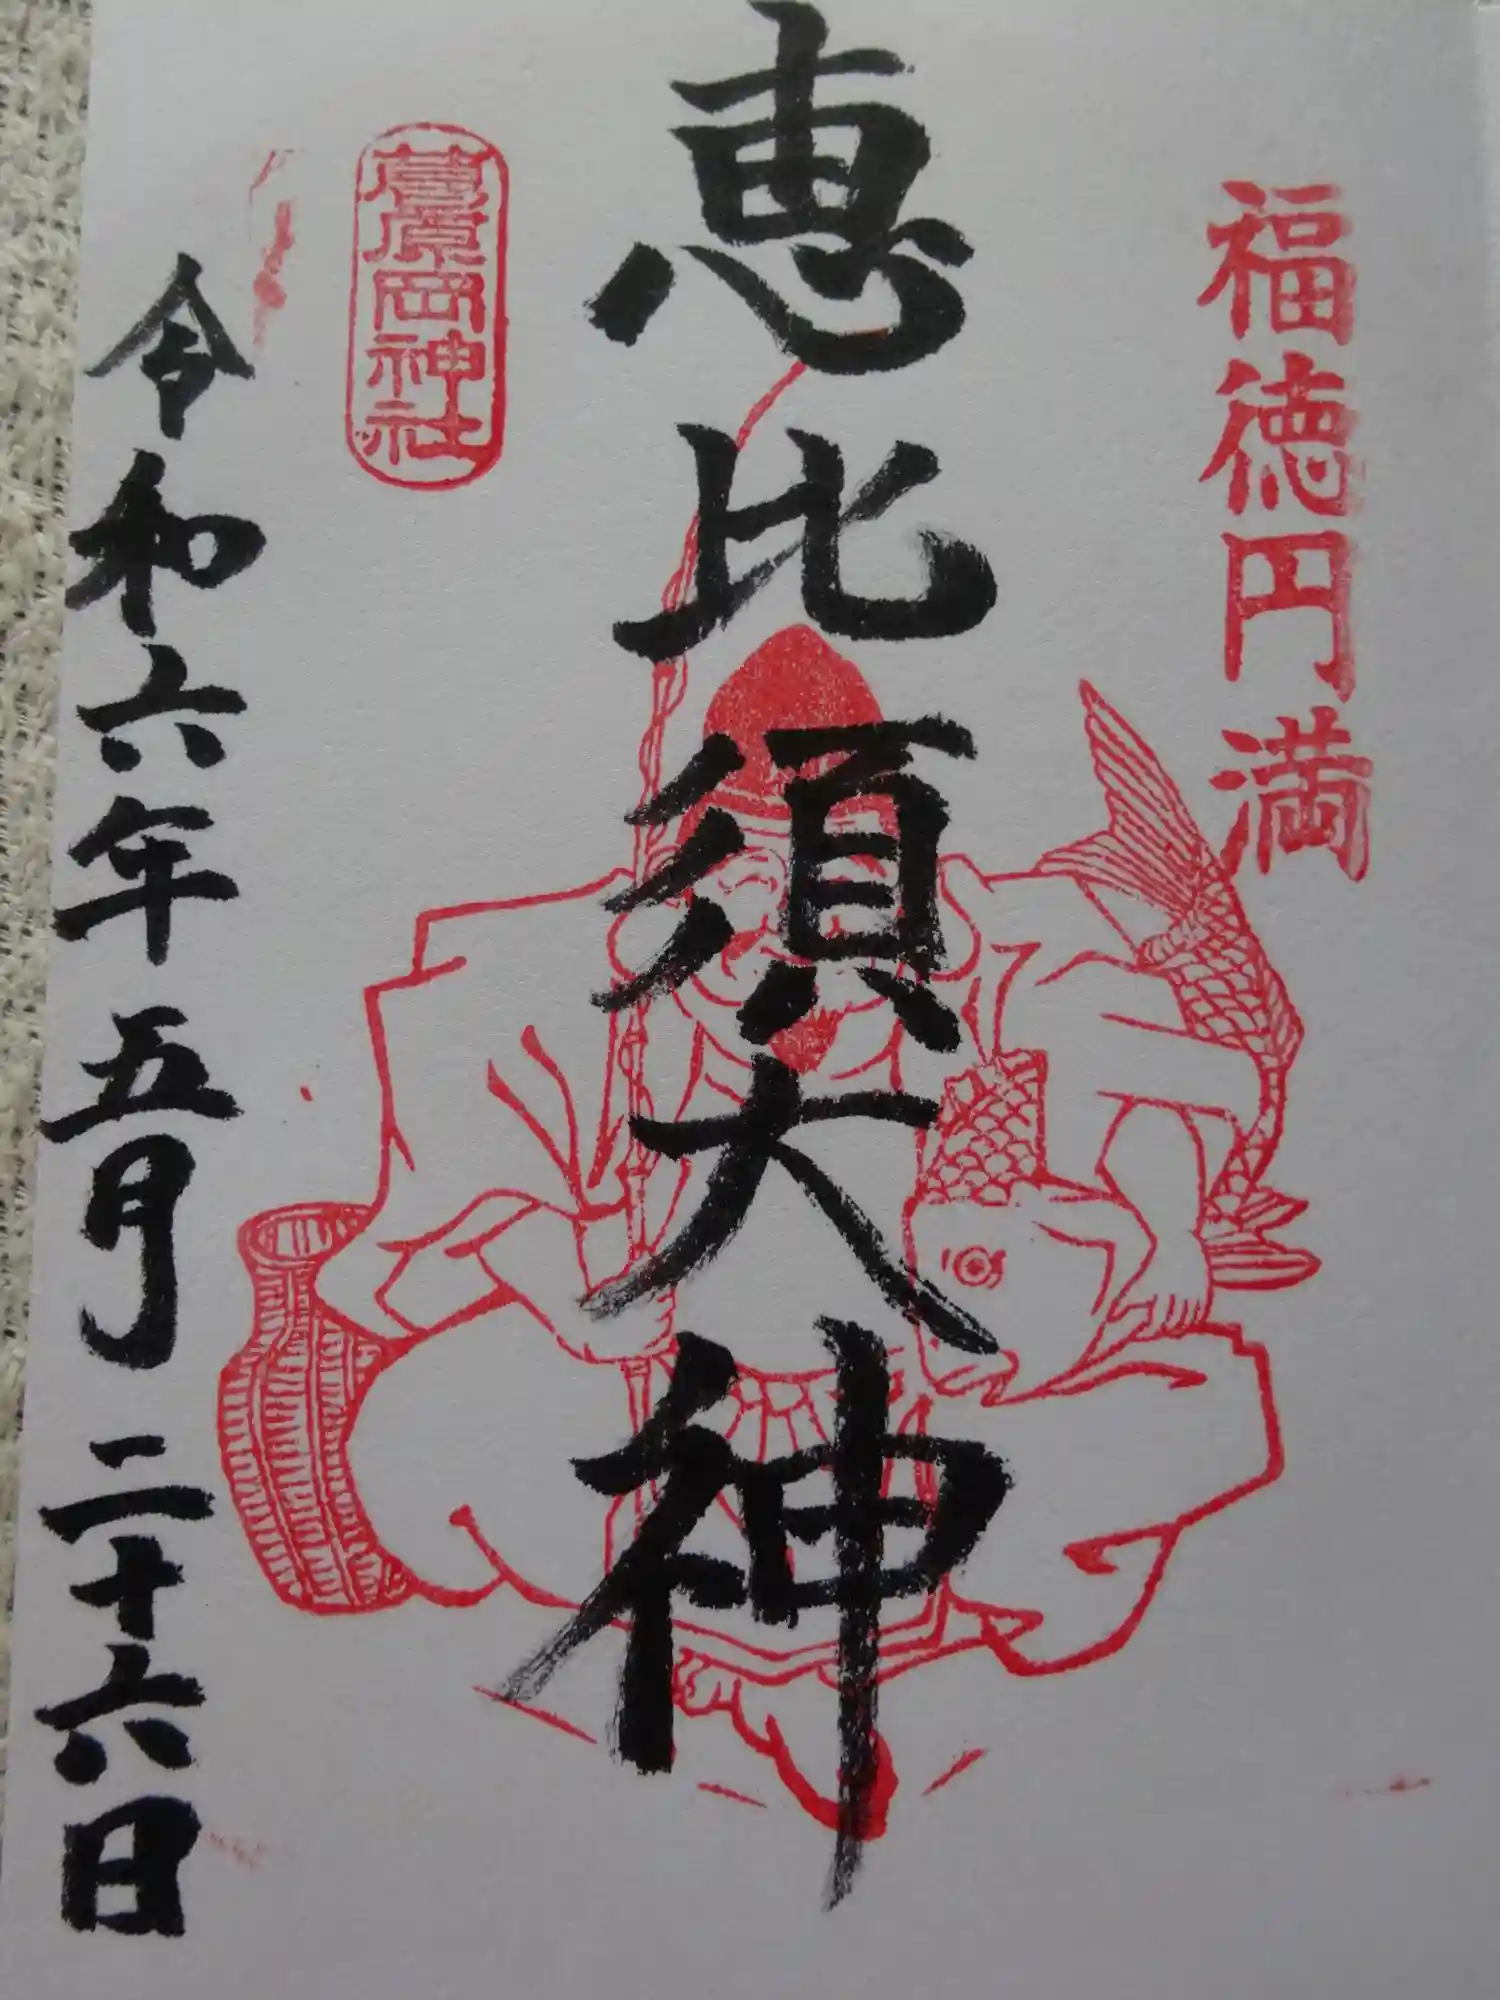 福徳円満
恵比須大神
葛原岡神社
令和六年五月二十六日